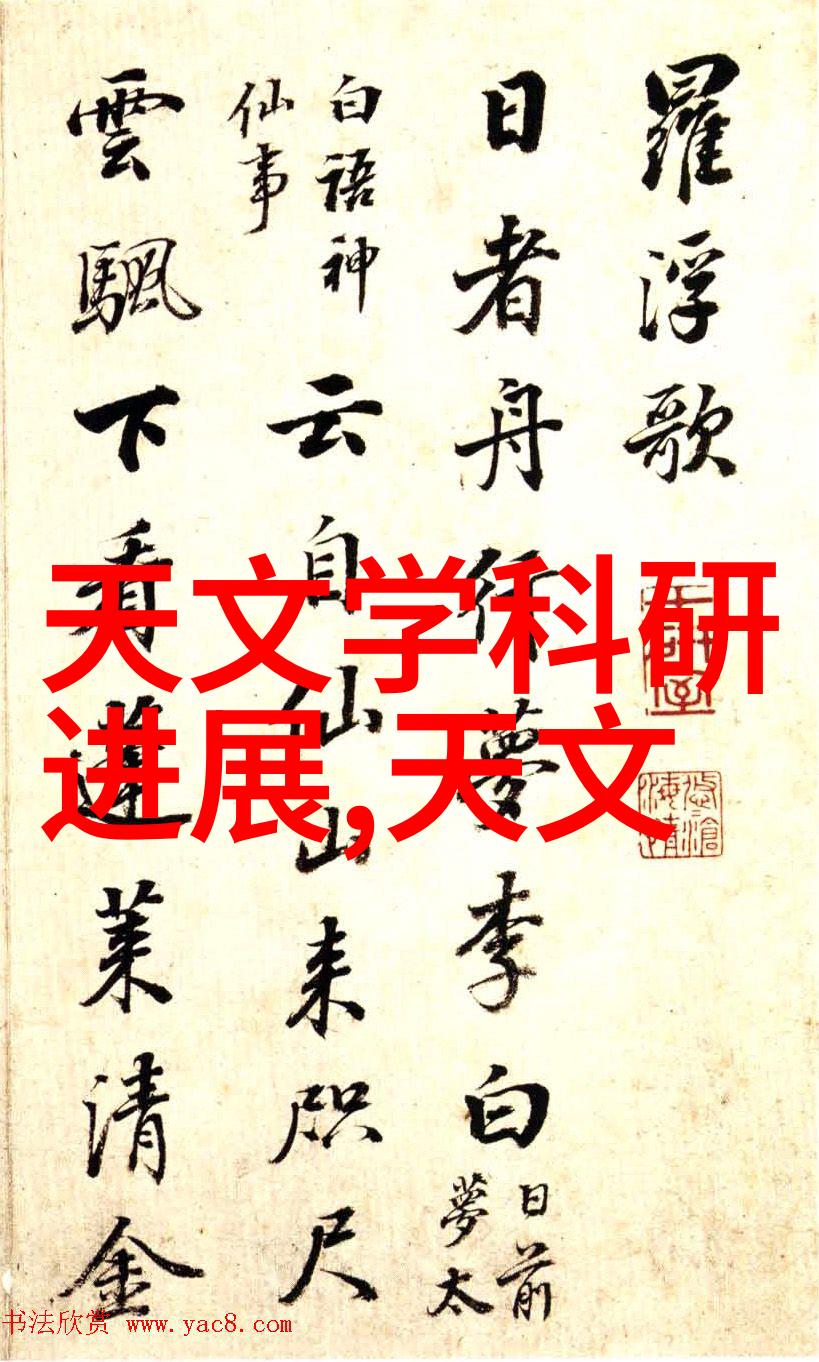 羅浮歌
日者舟行夢李白
日前
夢太
白語神
仙事
云自仙山来咫尺
雲颿下看蓬莱清金
天文学科研
进展,天文
书法欣赏 www.yac8.com